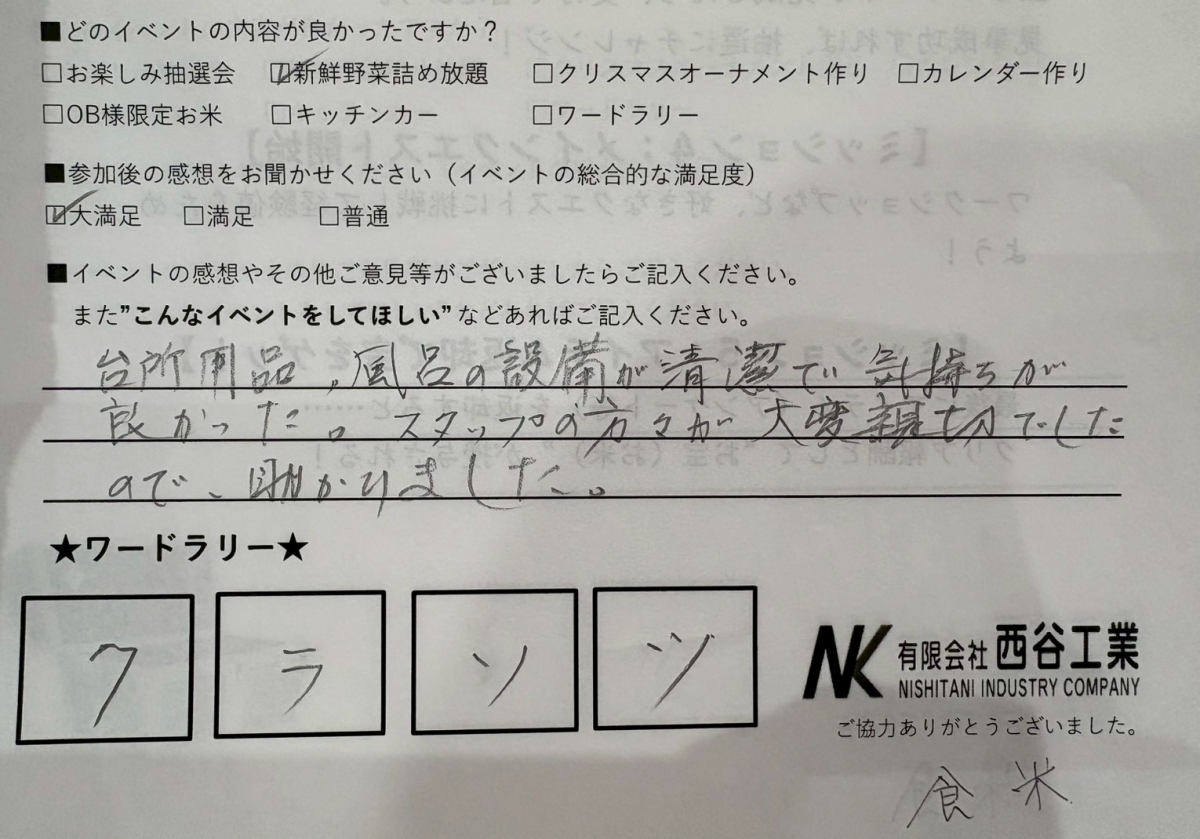 ■どのイベントの内容が良かったですか？
□お楽しみ抽選会 ☑新鮮野菜詰め放題 □クリスマスオーナメント作り □カレンダー作り
□OB様限定お米 □キッチンカー □ワードラリー
■参加後の感想をお聞かせください（イベントの総合的な満足度）
☑大満足 □満足 □普通
■イベントの感想やその他ご意見等がございましたらご記入ください。
また”こんなイベントをしてほしい”などあればご記入ください。
台所用品、風呂の設備が清潔で気持ちが
良かった。スタップの方々が大変親切でした
ので、助かりました。
★ワードラリー★
ク ラ ソ ヅ
NK 有限会社 西谷工業
NISHITANI INDUSTRY COMPANY
ご協力ありがとうございました。
食 米